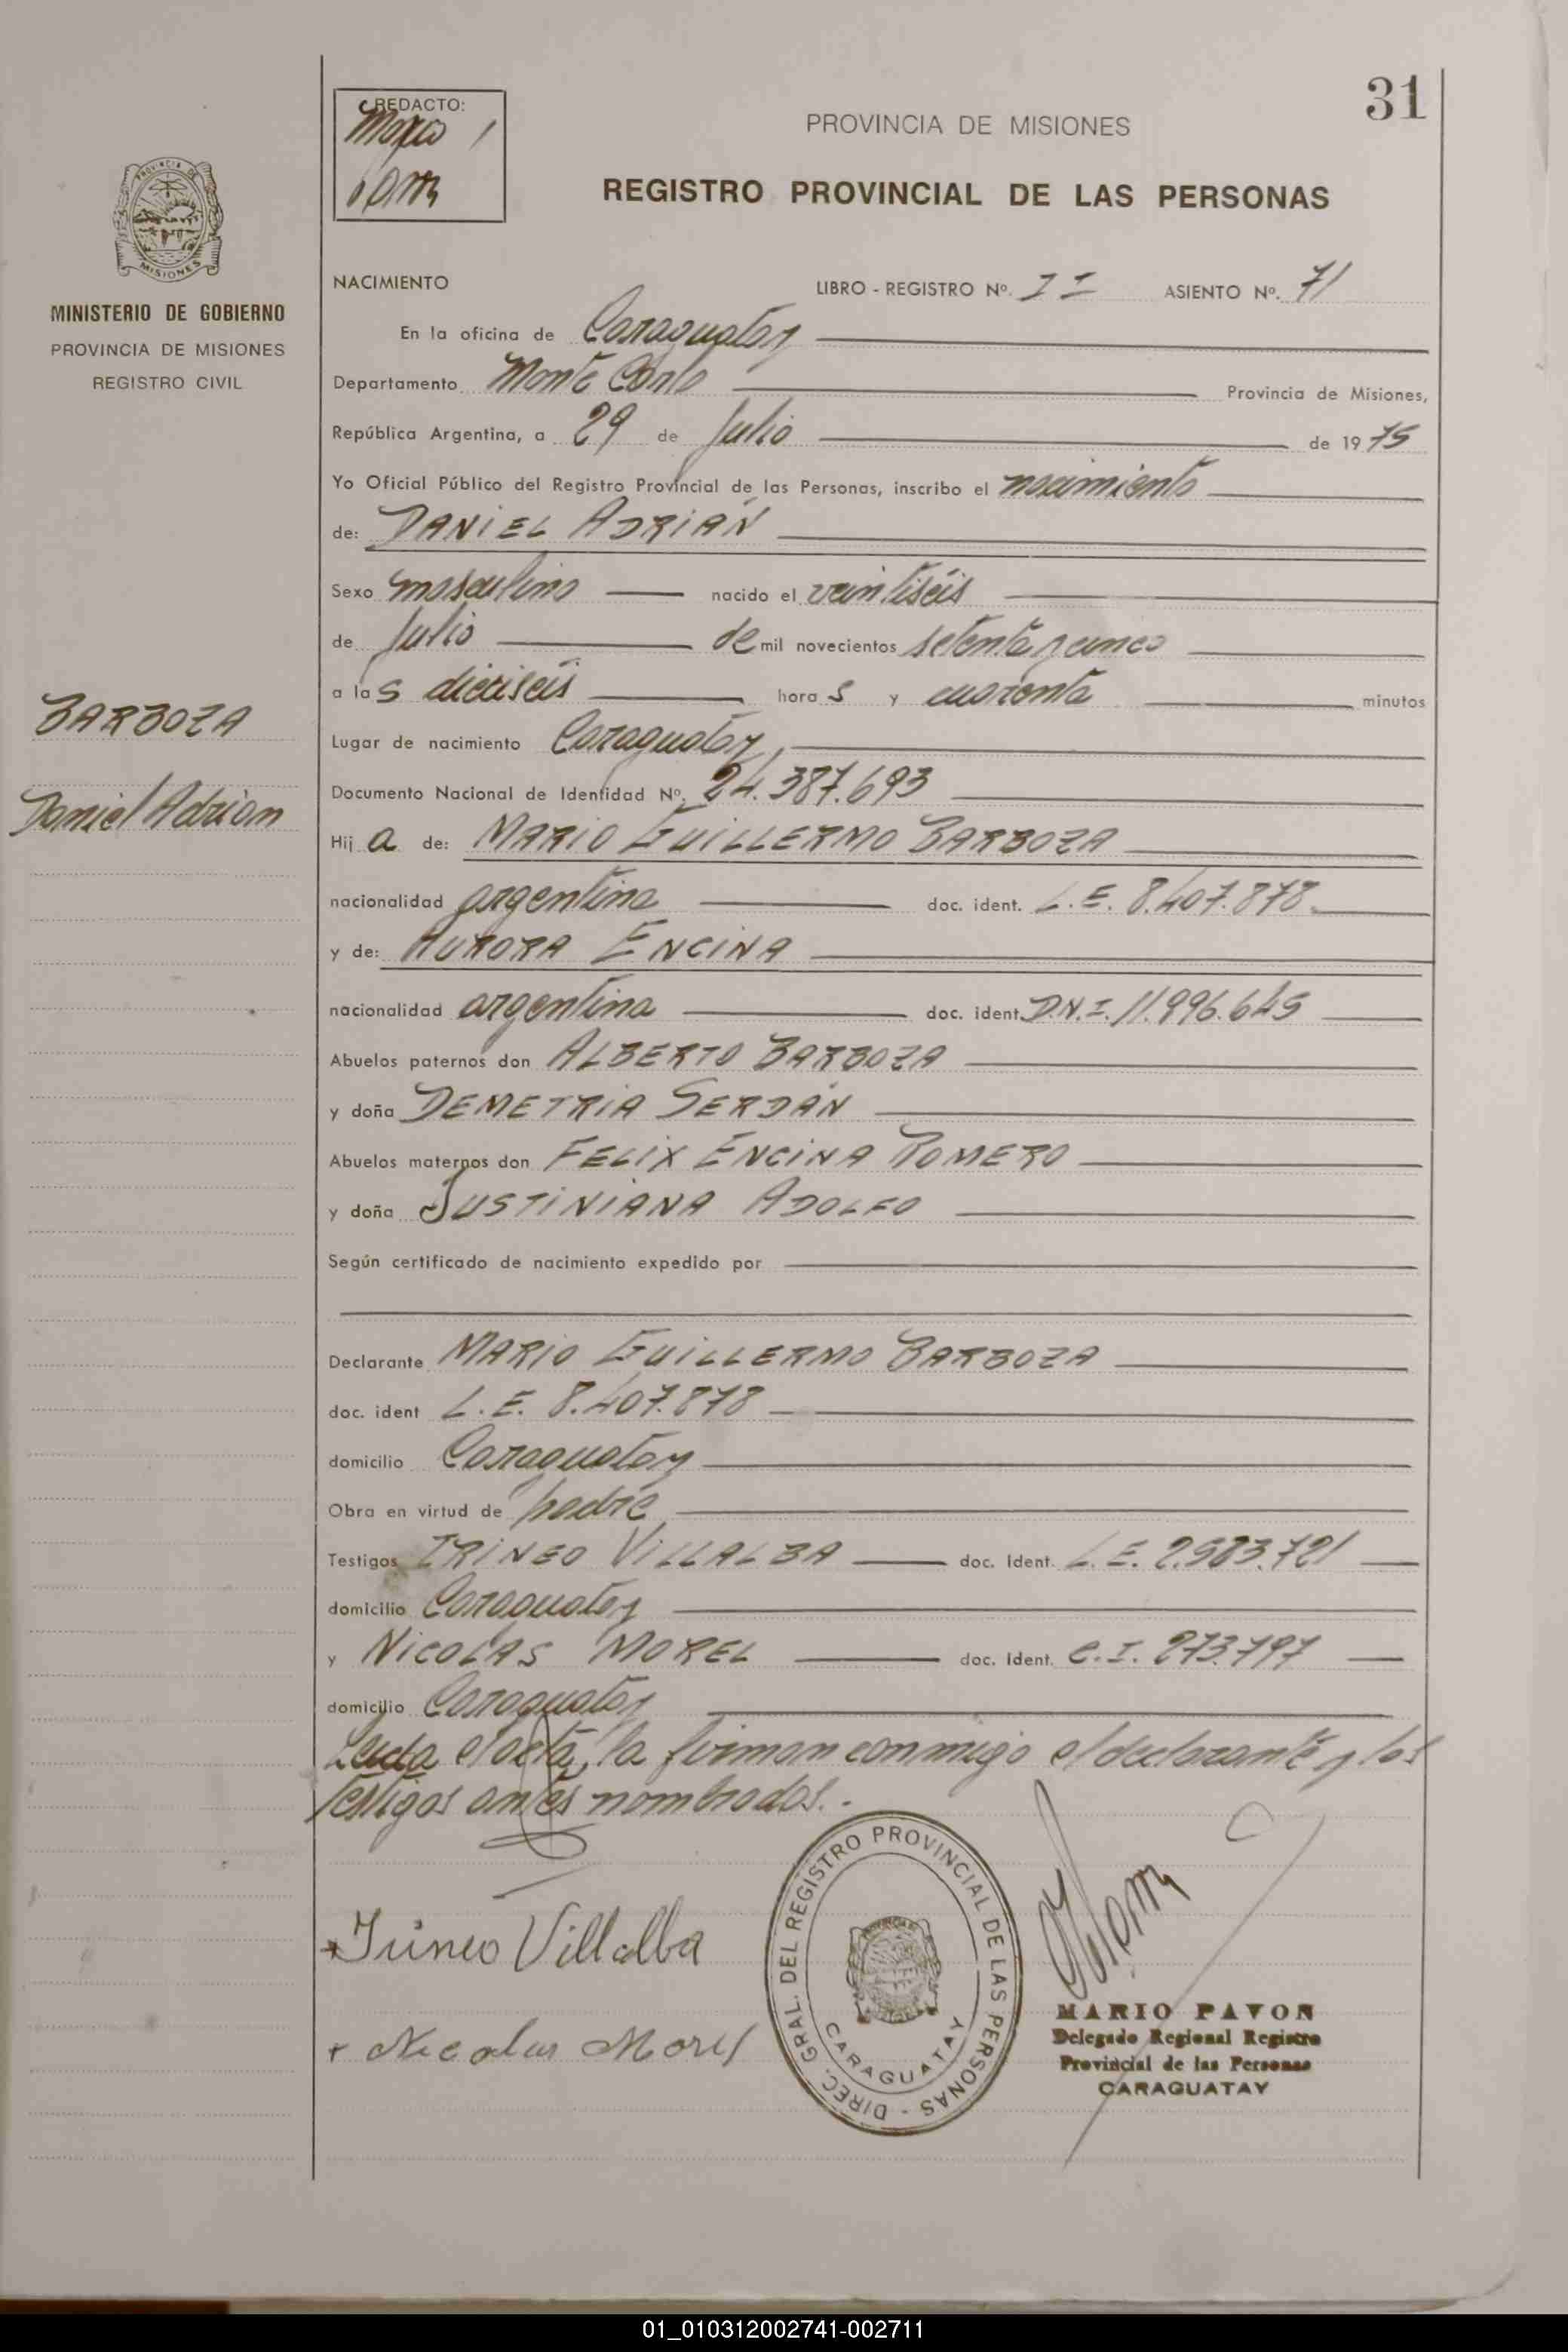 31
REDACTO:
PROVINCIA DE MISIONES
REGISTRO PROVINCIAL DE LAS PERSONAS
PROVINCIA DE
MISIONES
MINISTERIO DE GOBIERNO
PROVINCIA DE MISIONES
REGISTRO CIVIL
BARBOZA
Daniel Adrián
NACIMIENTO LIBRO - REGISTRO Nº. II ASIENTO Nº. 71
En la oficina de Caraguatay
Departamento Monte Carlo Provincia de Misiones,
República Argentina, a 29 de Julio de 1975
Yo Oficial Público del Registro Provincial de las Personas, inscribo el nacimiento
de: DANIEL ADRIÁN
Sexo masculino nacido el veintiséis
de Julio de mil novecientos setenta y cinco
a las dieciséis horas y cuarenta minutos
Lugar de nacimiento Caraguatay
Documento Nacional de Identidad Nº. 24.387.693
Hija de: MARIO GUILLERMO BARBOZA
nacionalidad argentina doc. ident. L.E. 8.407.878
y de: AURORA ENCINA
nacionalidad argentina doc. ident. D.N.I. 11.996.645
Abuelos paternos don ALBERTO BARBOZA
y doña DEMETRIA SERDÁN
Abuelos maternos don FELIX ENCINA ROMERO
y doña JUSTINIANA ADOLFO
Según certificado de nacimiento expedido por
Declarante MARIO GUILLERMO BARBOZA
doc. ident L.E. 8.407.878
domicilio Caraguatay
Obra en virtud de padre
Testigos IRINEO VILLALBA doc. Ident. L.E. 2.583.721
domicilio Caraguatay
y NICOLAS MOREL doc. Ident. C.I. 273.797
domicilio Caraguatay
Leída el acta, la firman conmigo el declarante y los
testigos antes nombrados.-
Irineo Villalba
Nicolas Morel
DIREC. GRAL. DEL REGISTRO PROVINCIAL DE LAS PERSONAS -
CARAGUATAY
MARIO PAVON
Delegado Regional Registro
Provincial de las Personas
CARAGUATAY
01_010312002741-002711